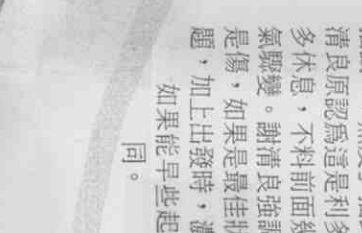 清良原認為這是利多
多休息，不料前面幾
氣驟變。謝清良強調
是傷，如果是最佳狀
題，加上出發時，
如果能早些起
同。